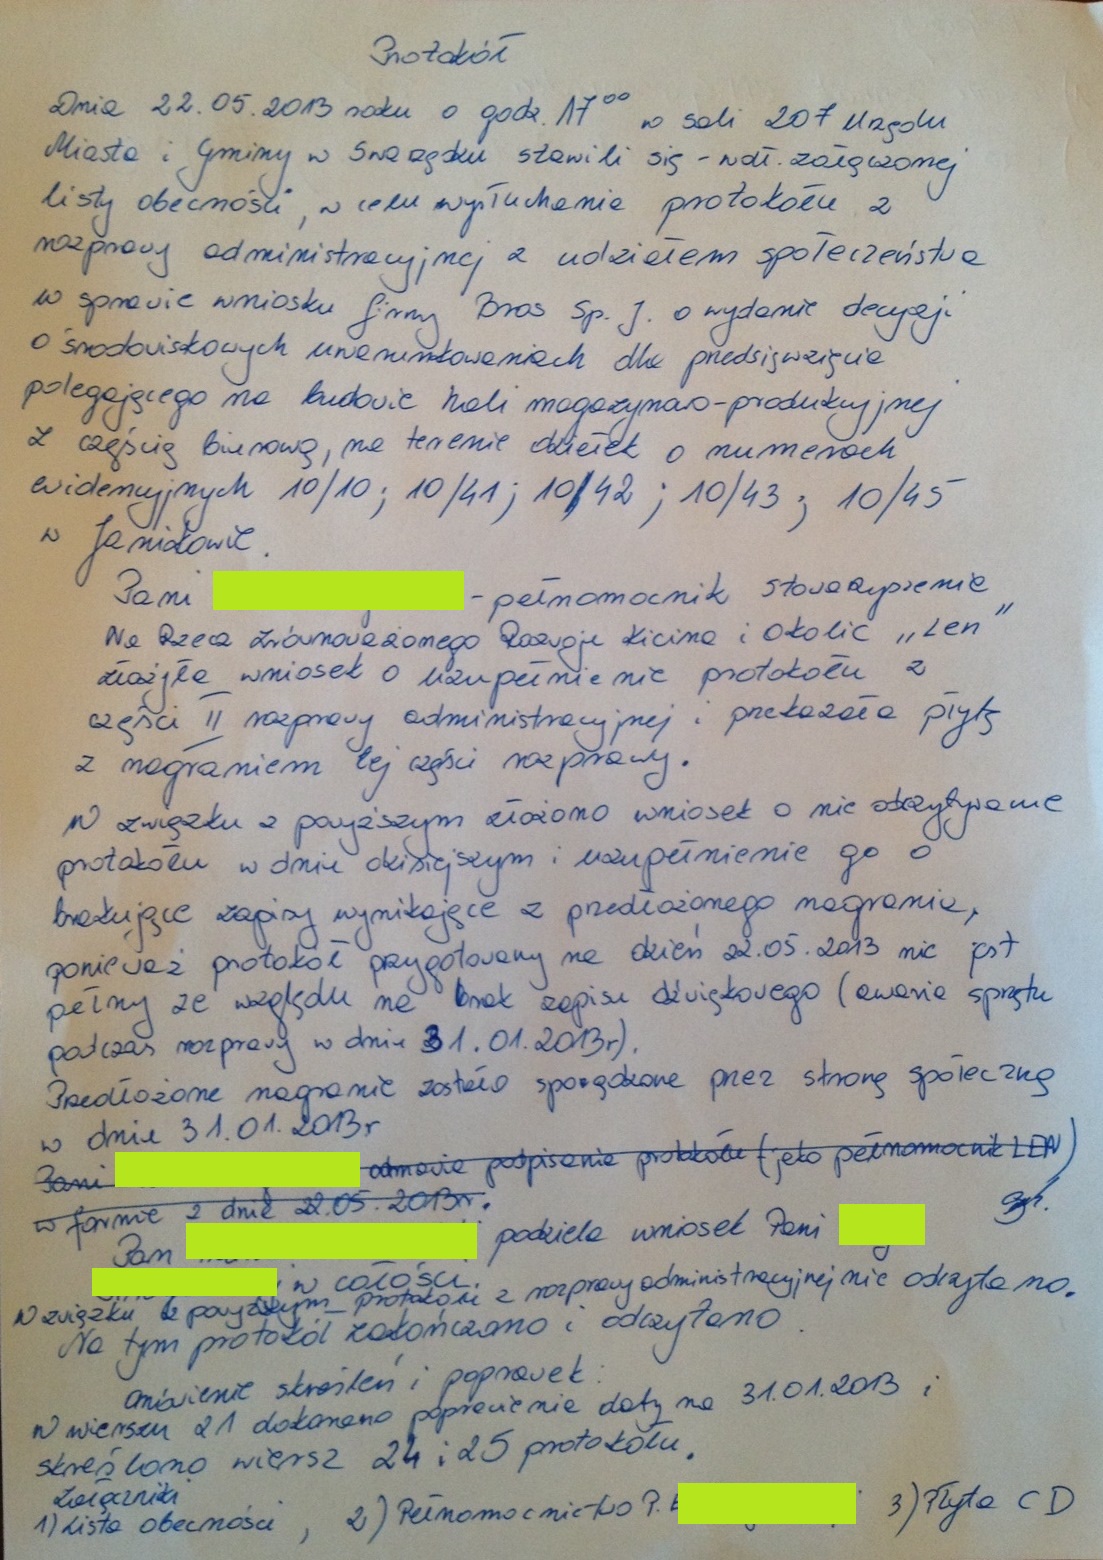 Protokół
Dnia 22.05.2013 roku o godz. 17⁰⁰ w sali 207 Urzędu
Miasta i Gminy w Swarzędzu stawili się - wdł. załączonej
listy obecności, w celu wysłuchania protokołu z
rozprawy administracyjnej z udziałem społeczeństwa
w sprawie wniosku firmy Bros Sp. J. o wydanie decyzji
o środowiskowych uwarunkowaniach dla przedsięwzięcia
polegającego na budowie hali magazynowo-produkcyjnej
z częścią biurową, na terenie działek o numerach
ewidencyjnych 10/10; 10/41; 10/42; 10/43; 10/45
w Janikowie.
Pani - pełnomocnik stowarzyszenia
Na Rzecz Zrównoważonego Rozwoju Kicina i Okolic „Len”
złożyła wniosek o uzupełnienie protokołu z
części II rozprawy administracyjnej i przekazała płytę
z nagraniem tej części rozprawy.
W związku z powyższym złożono wniosek o nie odczytywanie
protokołu w dniu dzisiejszym i uzupełnienie go o
brakujące zapisy wynikające z przedłożonego nagrania,
ponieważ protokół przygotowany na dzień 22.05.2013 nie jest
pełny ze względu na brak zapisu dźwiękowego (awaria sprzętu
podczas rozprawy w dniu 31.01.2013r).
Przedłożone nagranie zostało sporządzone przez stronę społeczną
w dniu 31.01.2013r
Pani odmawia podpisania protokołu (jako pełnomocnik LEN)
w formie z dnia 22.05.2013r.
Pan podziela wniosek Pani
w całości.
W związku z powyższym protokołu z rozprawy administracyjnej nie odczytano.
Na tym protokół zakończono i odczytano.
Omówienie skreśleń i poprawek:
W wierszu 21 dokonano poprawienia daty na 31.01.2013 i
skreślono wiersz 24 i 25 protokołu.
Załączniki
1) Lista obecności, 2) Pełnomocnictwo P. 3) Płyta CD